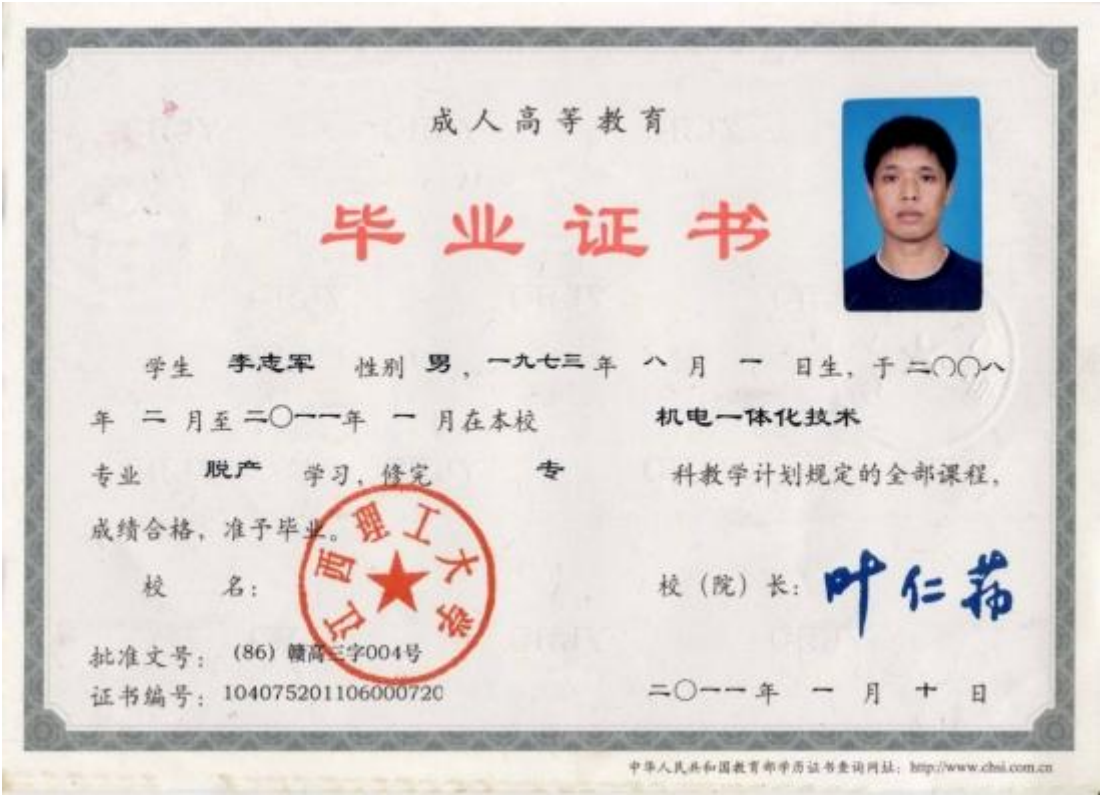 成人高等教育
毕业证书
学生 李志军 性别 男，一九七三年 八 月 一 日生，于二〇〇八
年 二 月至二〇一一年 一 月在本校 机电一体化技术
专业 脱产 学习，修完 专 科教学计划规定的全部课程，
成绩合格，准予毕业。
校 名： 江西理工大学 校（院）长：叶仁荪
批准文号：（86）赣高三字004号
证书编号：104075201106000720 二〇一一年 一 月 十 日
中华人民共和国教育部学历证书查询网址：http://www.chsi.com.cn